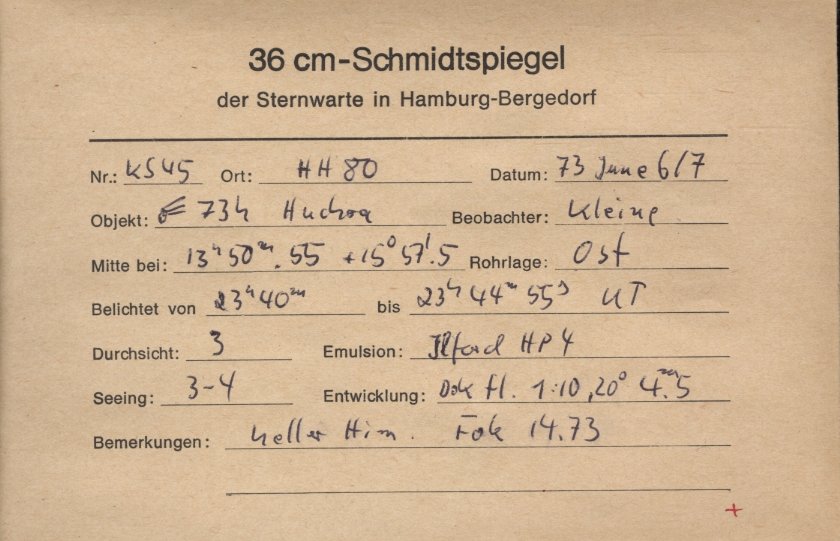 36 cm-Schmidtspiegel
der Sternwarte in Hamburg-Bergedorf
Nr.: KS45 Ort: HH 80 Datum: 73 June 6/7
Objekt: 73h Huchra Beobachter: Kleine
Mitte bei: 13ʰ50ᵐ.55 +15°57'.5 Rohrlage: Ost
Belichtet von 23ʰ40ᵐ bis 23ʰ44ᵐ55ˢ UT
Durchsicht: 3 Emulsion: Ilford HP4
Seeing: 3-4 Entwicklung: Dok fl. 1:10, 20° 4ᵐ.5
Bemerkungen: heller Him. Fok 14.73
+